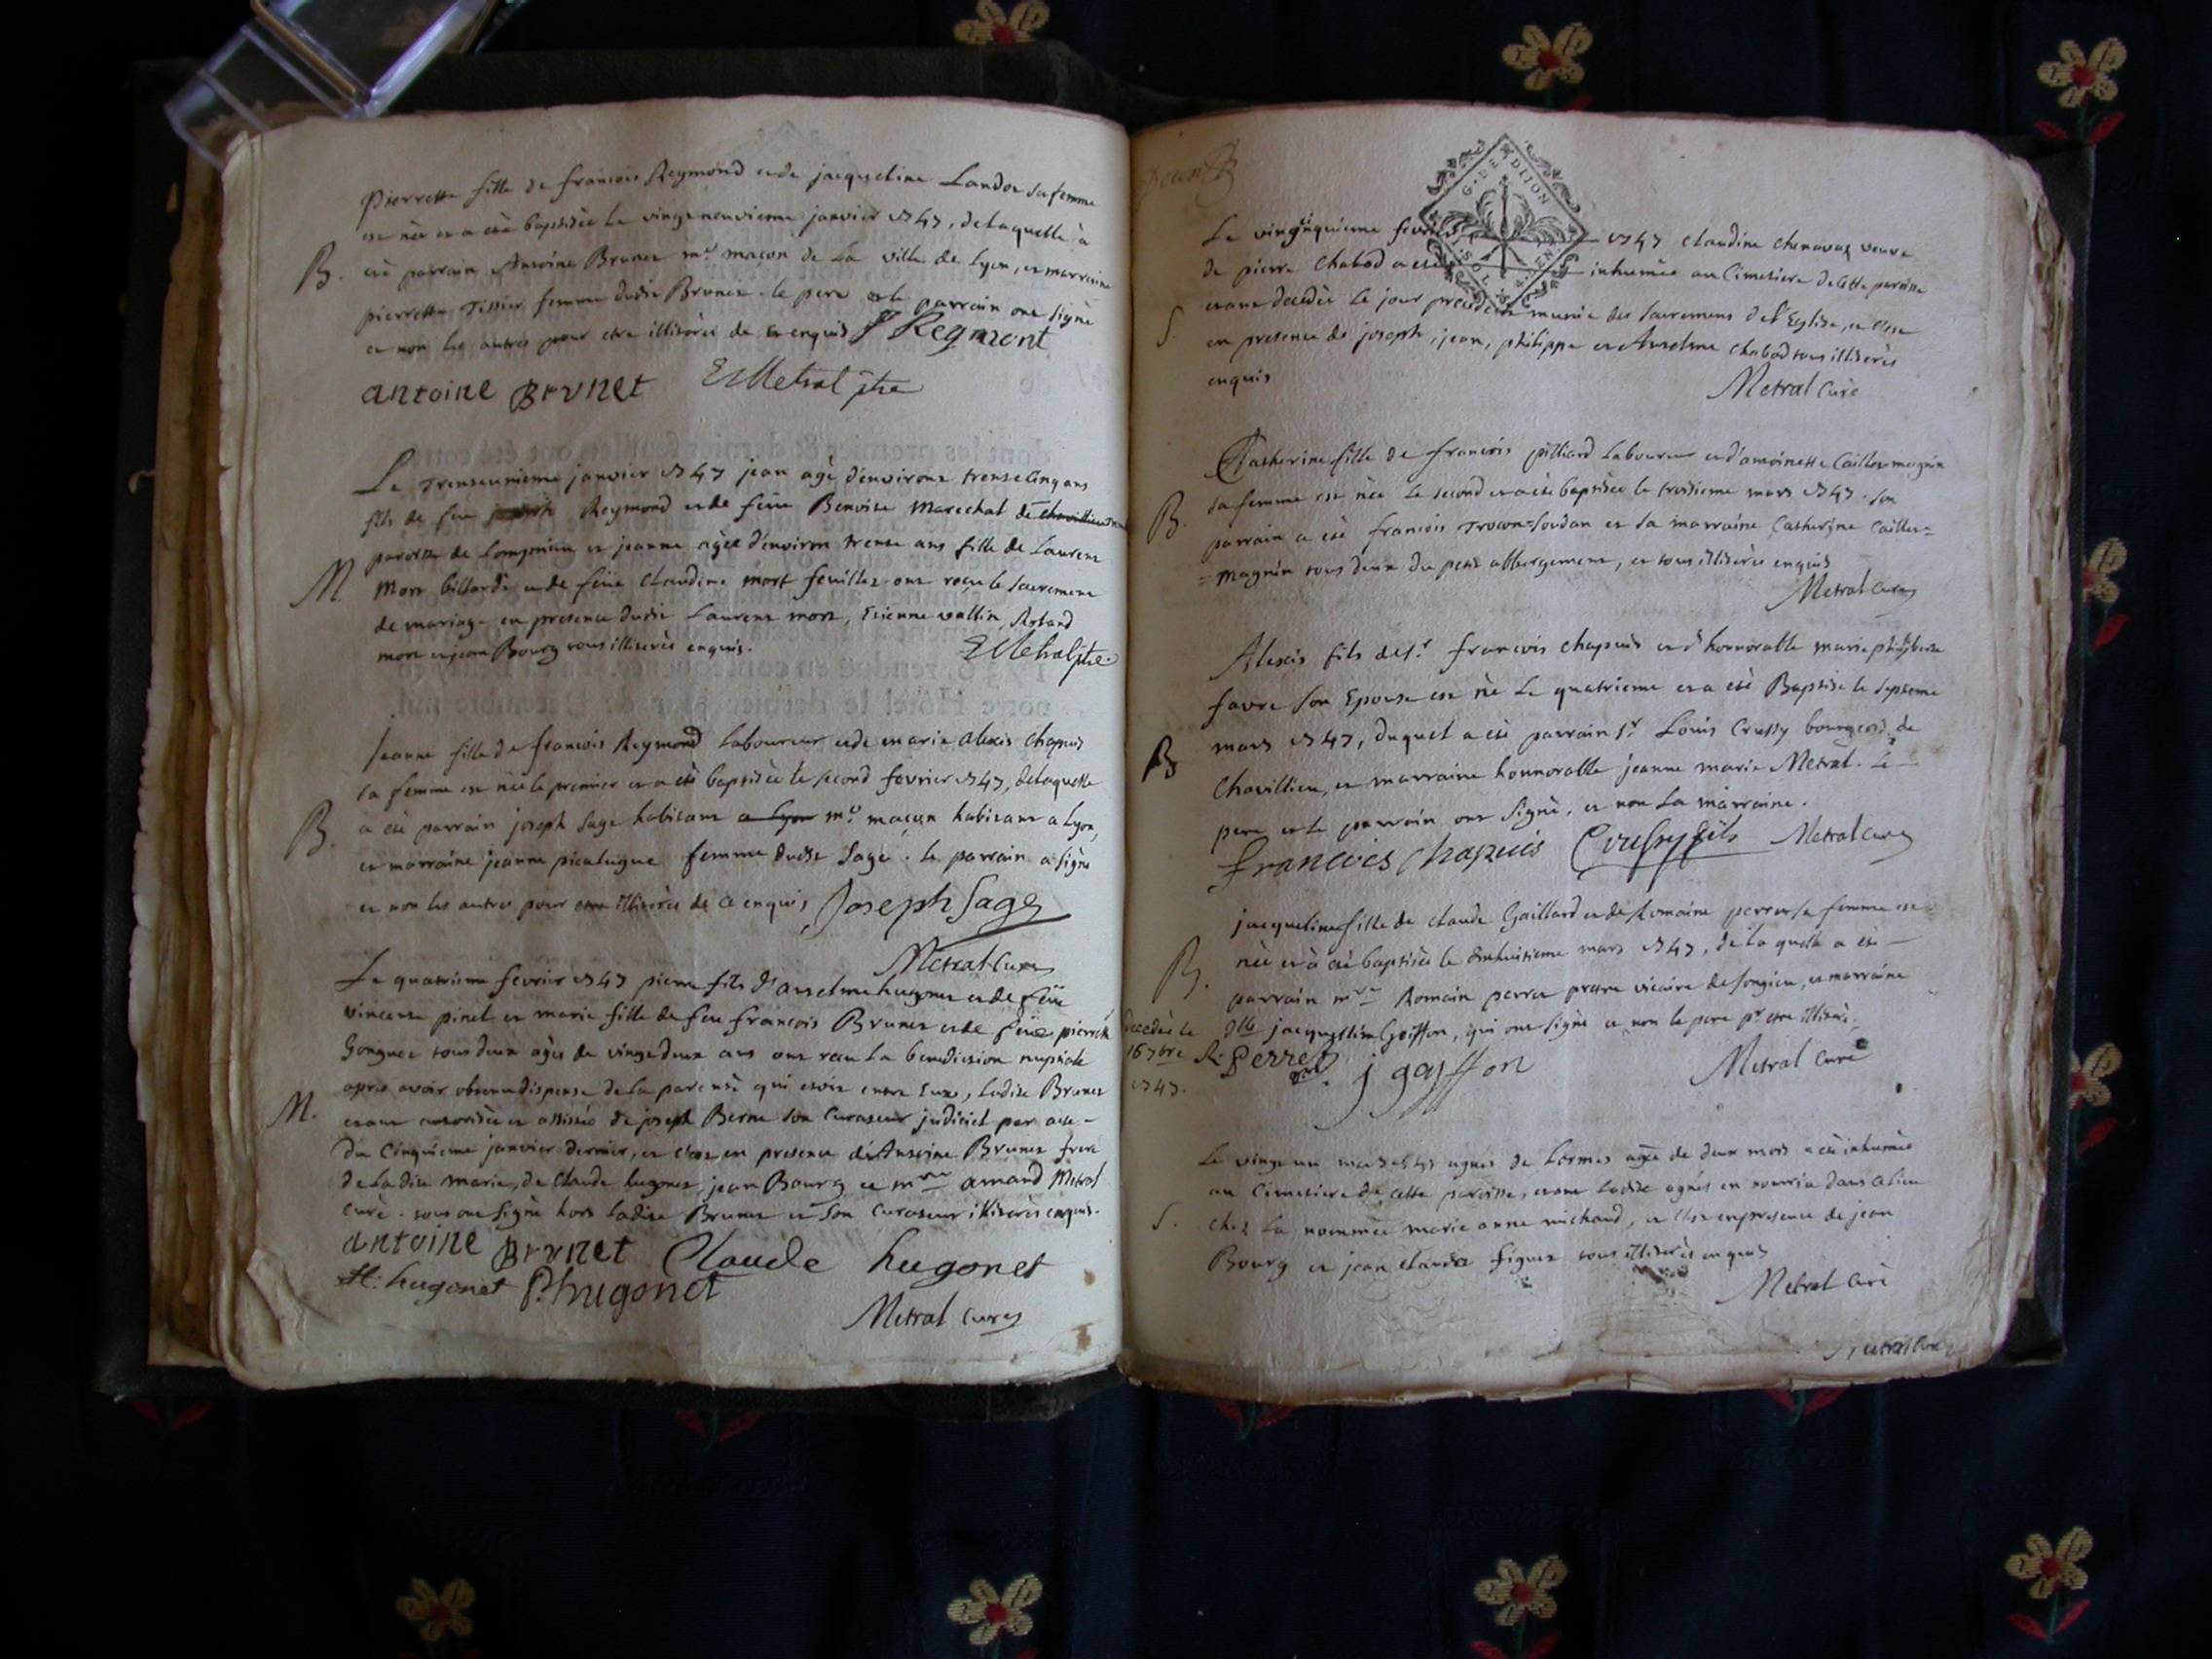 Pierrette fille de francois Reymond et de jacqueline Landoz sa femme
est née et a été baptisée le vingt neuvieme janvier 1747, de laquelle à
B. été parrain Antoine Brunet m.e macon de La ville de Lyon, et marraine
pierrette Tissier femme dudit Brunet. le pere et le parrain ont signé
et non les autres pour etre illiterés de ce enquis J Regmont
antoine Brvnet E Metral ptre
Le trenteunieme janvier 1747 jean agé d'environt trente cinq ans
fils de feu Reymond et de feüe Benoite Marechal de
paroisse de et jeanne agée d'environ trente ans fille de Laurent
M. Mort billard et de feüe Claudine mort feuillet ont reçu le sacrement
de mariage en presence dudit Laurent mort, Etienne vallin, Roland
mort et jean Bourg tous illiterés enquis. E Metral ptre.
Jeanne fille de francois Reymond laboureur et de marie alexis chapuis
sa femme est née le premier et a été baptisée le second fevrier 1747, de laquelle
B. a été parrain joseph Sage habitant a Lyon m.e maçon habitant a Lyon,
et marraine jeanne picatugue femme dudit Sage. le parrain a signé
et non les autres pour etre illiterés de ce enquis Joseph Sage
Metral Curé
Le quatrieme fevrier 1747 pierre fils d'anselme hugonet et de feüe
vincente pinet et marie fille de feu francois Brunet et de feüe pierrette
Gonguet tous deux agés de vingt deux ans ont recu la benediction nuptiale
apres avoir obtenu dispense de la parenté qui etoit entre Eux, ladite Brunet
M. etant authorisée et assistée de joseph Berne son curateur judiciel par acte
du Cinquieme janvier dernier, et c'est en presence d'Antoine Brunet frere
de Ladite marie, de Claude hugonet, jean Bourg et m.re amand Metral
curé. tous ont signé hors ladite Brunet et son curateur illiterés enquis.
antoine Brvnet Claude hugonet
H. hugonet P. hugonet
Metral Curé
Le vingt cinquieme fevrier 1747 Claudine Chenavaz veuve
de pierre Chabod a été inhumée au Cimetiere de Cette paroisse
S. etant decedée le jour precedent munie des sacremens de l'Eglise, et c'est
en presence de joseph, jean, philippe et Anselme chabod tous illiterés
enquis
Metral Curé
G. DE DITION
Catherine fille de francois pilliard Laboureur et d'antoinette Caillot-magnin
sa femme est née le second et a été baptisée le troisieme mars 1747. son
B. parrain a été francois Trocon-Soudan et sa marraine Catherine Caillot=
=Magnin tous deux du petit abbergement, et tous illiterés enquis
Metral Curé
Alexis fils de s.r francois chapuis et d'honnorable marie philiberte
favre son Epouse est né Le quatrieme et a été Baptisé le septieme
B mars 1747, duquel a été parrain s.r Louis Crussy bourgeois de
Chavillieu, et marraine honnorable jeanne marie Metral. Le
pere et le parrain ont signé, et non la marraine.
francois Chapuis Crussy fils Metral Curé
jacqueline fille de claude Gaillard et de Romaine perret sa femme est
née et à été baptisée le dixhuitieme mars 1747, de la quelle a été
B. parrain m.re Romain perret pretre vicaire de Songieu, et marraine
decedée le
16 7bre
1747.
Dlle jacqueline Goiffon, qui ont signé et non le pere p.r etre illiteré.
R. Perret j gaiffon Metral Curé
Le vingt un mars 1747 agnes de Lormes agée de deux mois a été inhumée
au Cimetiere de cette paroisse, etant ladite agnes en nourrice dans ce lieu
S. chez la nommée marie anne michaud, et c'est en presence de jean
Bourg et jean claude figuet tous illiterés enquis
Metral Curé
Metral Curé